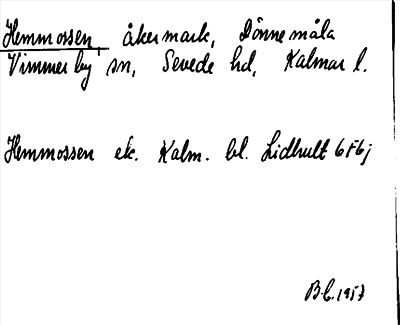 Hemmossen, åkermark, Dönnemåla
Vimmerby sn, Sevede hd, Kalmar l.
Hemmossen ek. Kalm. bl. Lidhult 6F6j
B.C. 1957